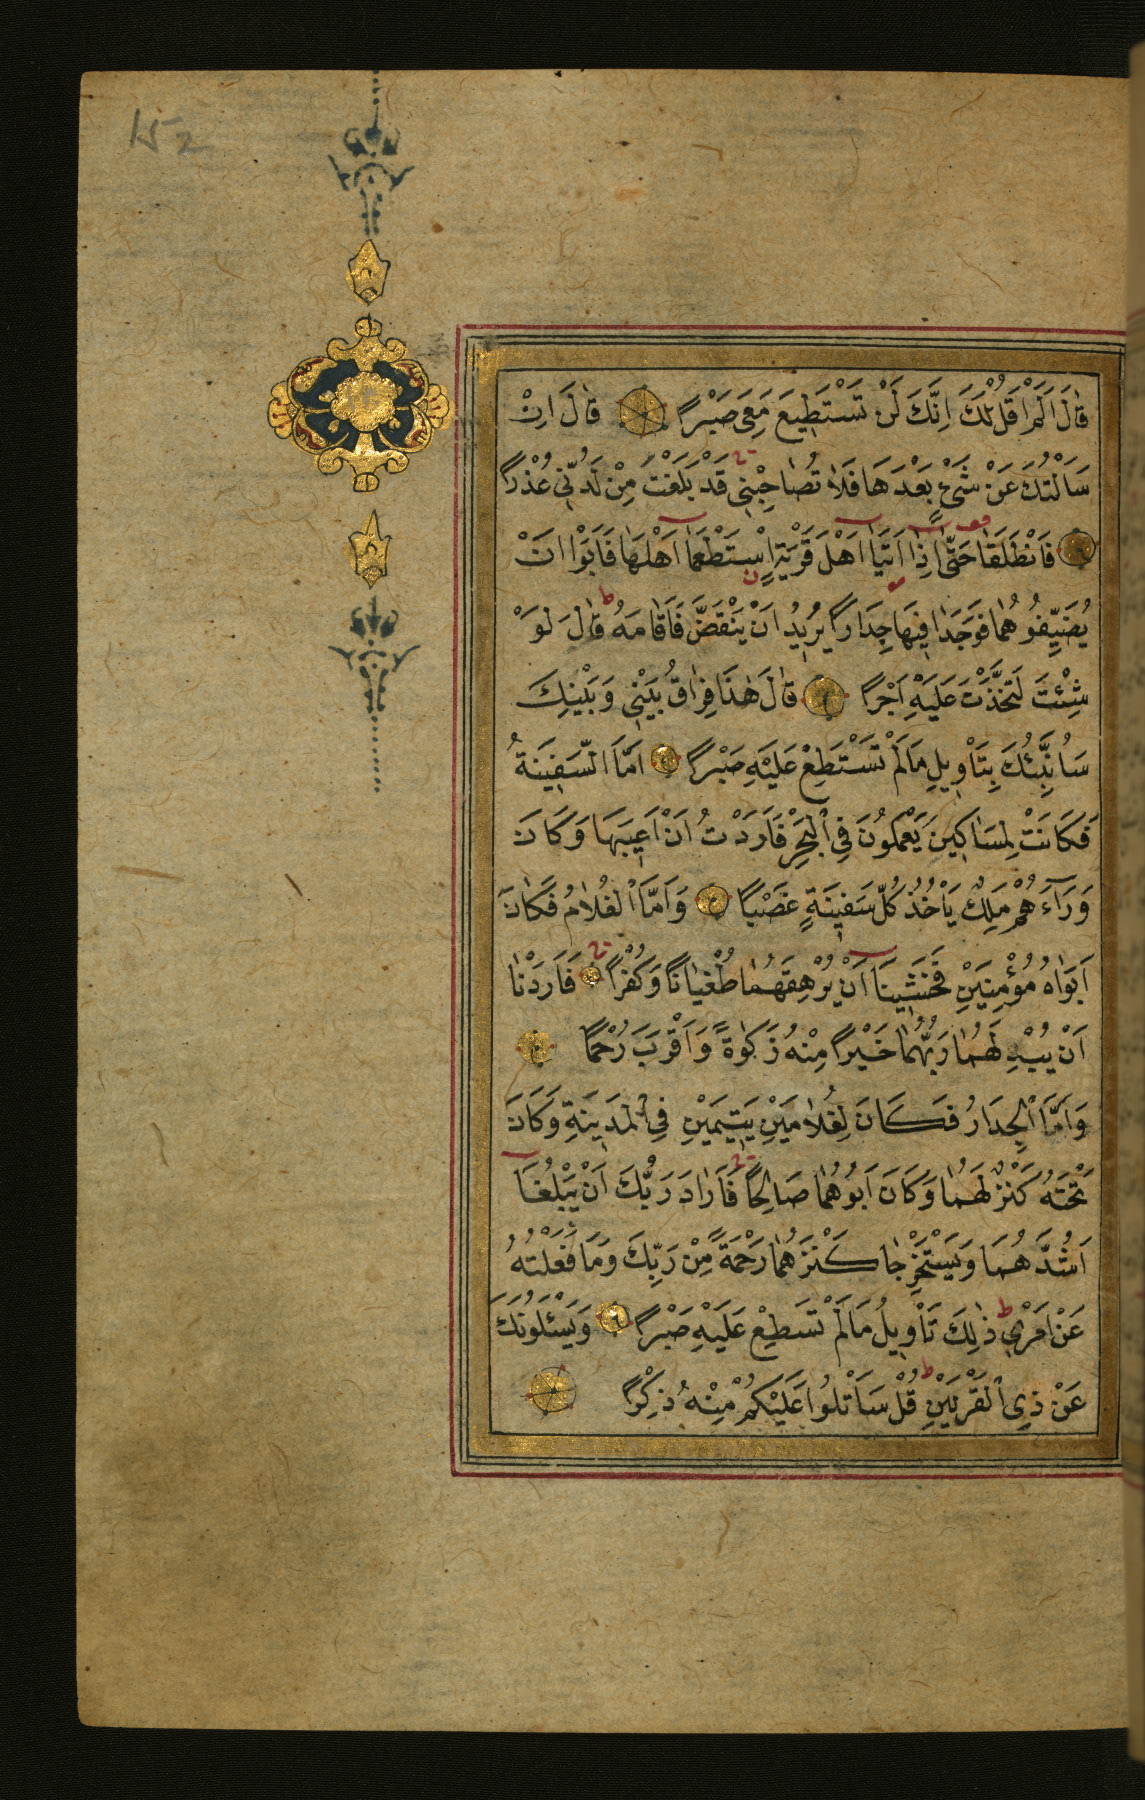 152
قَالَ اَلَمْ اَقُلْ لَكَ اِنَّكَ لَنْ تَسْتَطِيعَ مَعِيَ صَبْرًا قَالَ اِنْ
سَاَلْتُكَ عَنْ شَيْءٍ بَعْدَهَا فَلَا تُصَاحِبْنِي قَدْ بَلَغْتَ مِنْ لَدُنِّي عُذْرًا
فَانْطَلَقَا حَتَّى اِذَا اَتَيَا اَهْلَ قَرْيَةٍ اسْتَطْعَمَا اَهْلَهَا فَاَبَوْا اَنْ
يُضَيِّفُوهُمَا فَوَجَدَا فِيهَا جِدَارًا يُرِيدُ اَنْ يَنْقَضَّ فَاَقَامَهُ قَالَ لَوْ
شِئْتَ لَتَّخَذْتَ عَلَيْهِ اَجْرًا قَالَ هٰذَا فِرَاقُ بَيْنِي وَبَيْنِكَ
سَاُنَبِّئُكَ بِتَاْوِيلِ مَا لَمْ تَسْتَطِعْ عَلَيْهِ صَبْرًا اَمَّا السَّفِينَةُ
فَكَانَتْ لِمَسَاكِينَ يَعْمَلُونَ فِي الْبَحْرِ فَاَرَدْتُ اَنْ اَعِيبَهَا وَكَانَ
وَرَآءَهُمْ مَلِكٌ يَاْخُذُ كُلَّ سَفِينَةٍ غَصْبًا وَاَمَّا الْغُلَامُ فَكَانَ
اَبَوَاهُ مُؤْمِنَيْنِ فَخَشِينَا اَنْ يُرْهِقَهُمَا طُغْيَانًا وَكُفْرًا فَاَرَدْنَا
اَنْ يُبْدِلَهُمَا رَبُّهُمَا خَيْرًا مِنْهُ زَكٰوةً وَاَقْرَبَ رُحْمًا
وَاَمَّا الْجِدَارُ فَكَانَ لِغُلَامَيْنِ يَتِيمَيْنِ فِي الْمَدِينَةِ وَكَانَ
تَحْتَهُ كَنْزٌ لَهُمَا وَكَانَ اَبُوهُمَا صَالِحًا فَاَرَادَ رَبُّكَ اَنْ يَبْلُغَا
اَشُدَّهُمَا وَيَسْتَخْرِجَا كَنْزَهُمَا رَحْمَةً مِنْ رَبِّكَ وَمَا فَعَلْتُهُ
عَنْ اَمْرِي ذٰلِكَ تَاْوِيلُ مَا لَمْ تَسْطِعْ عَلَيْهِ صَبْرًا وَيَسْئَلُونَكَ
عَنْ ذِي الْقَرْنَيْنِ قُلْ سَاَتْلُوا عَلَيْكُمْ مِنْهُ ذِكْرًا